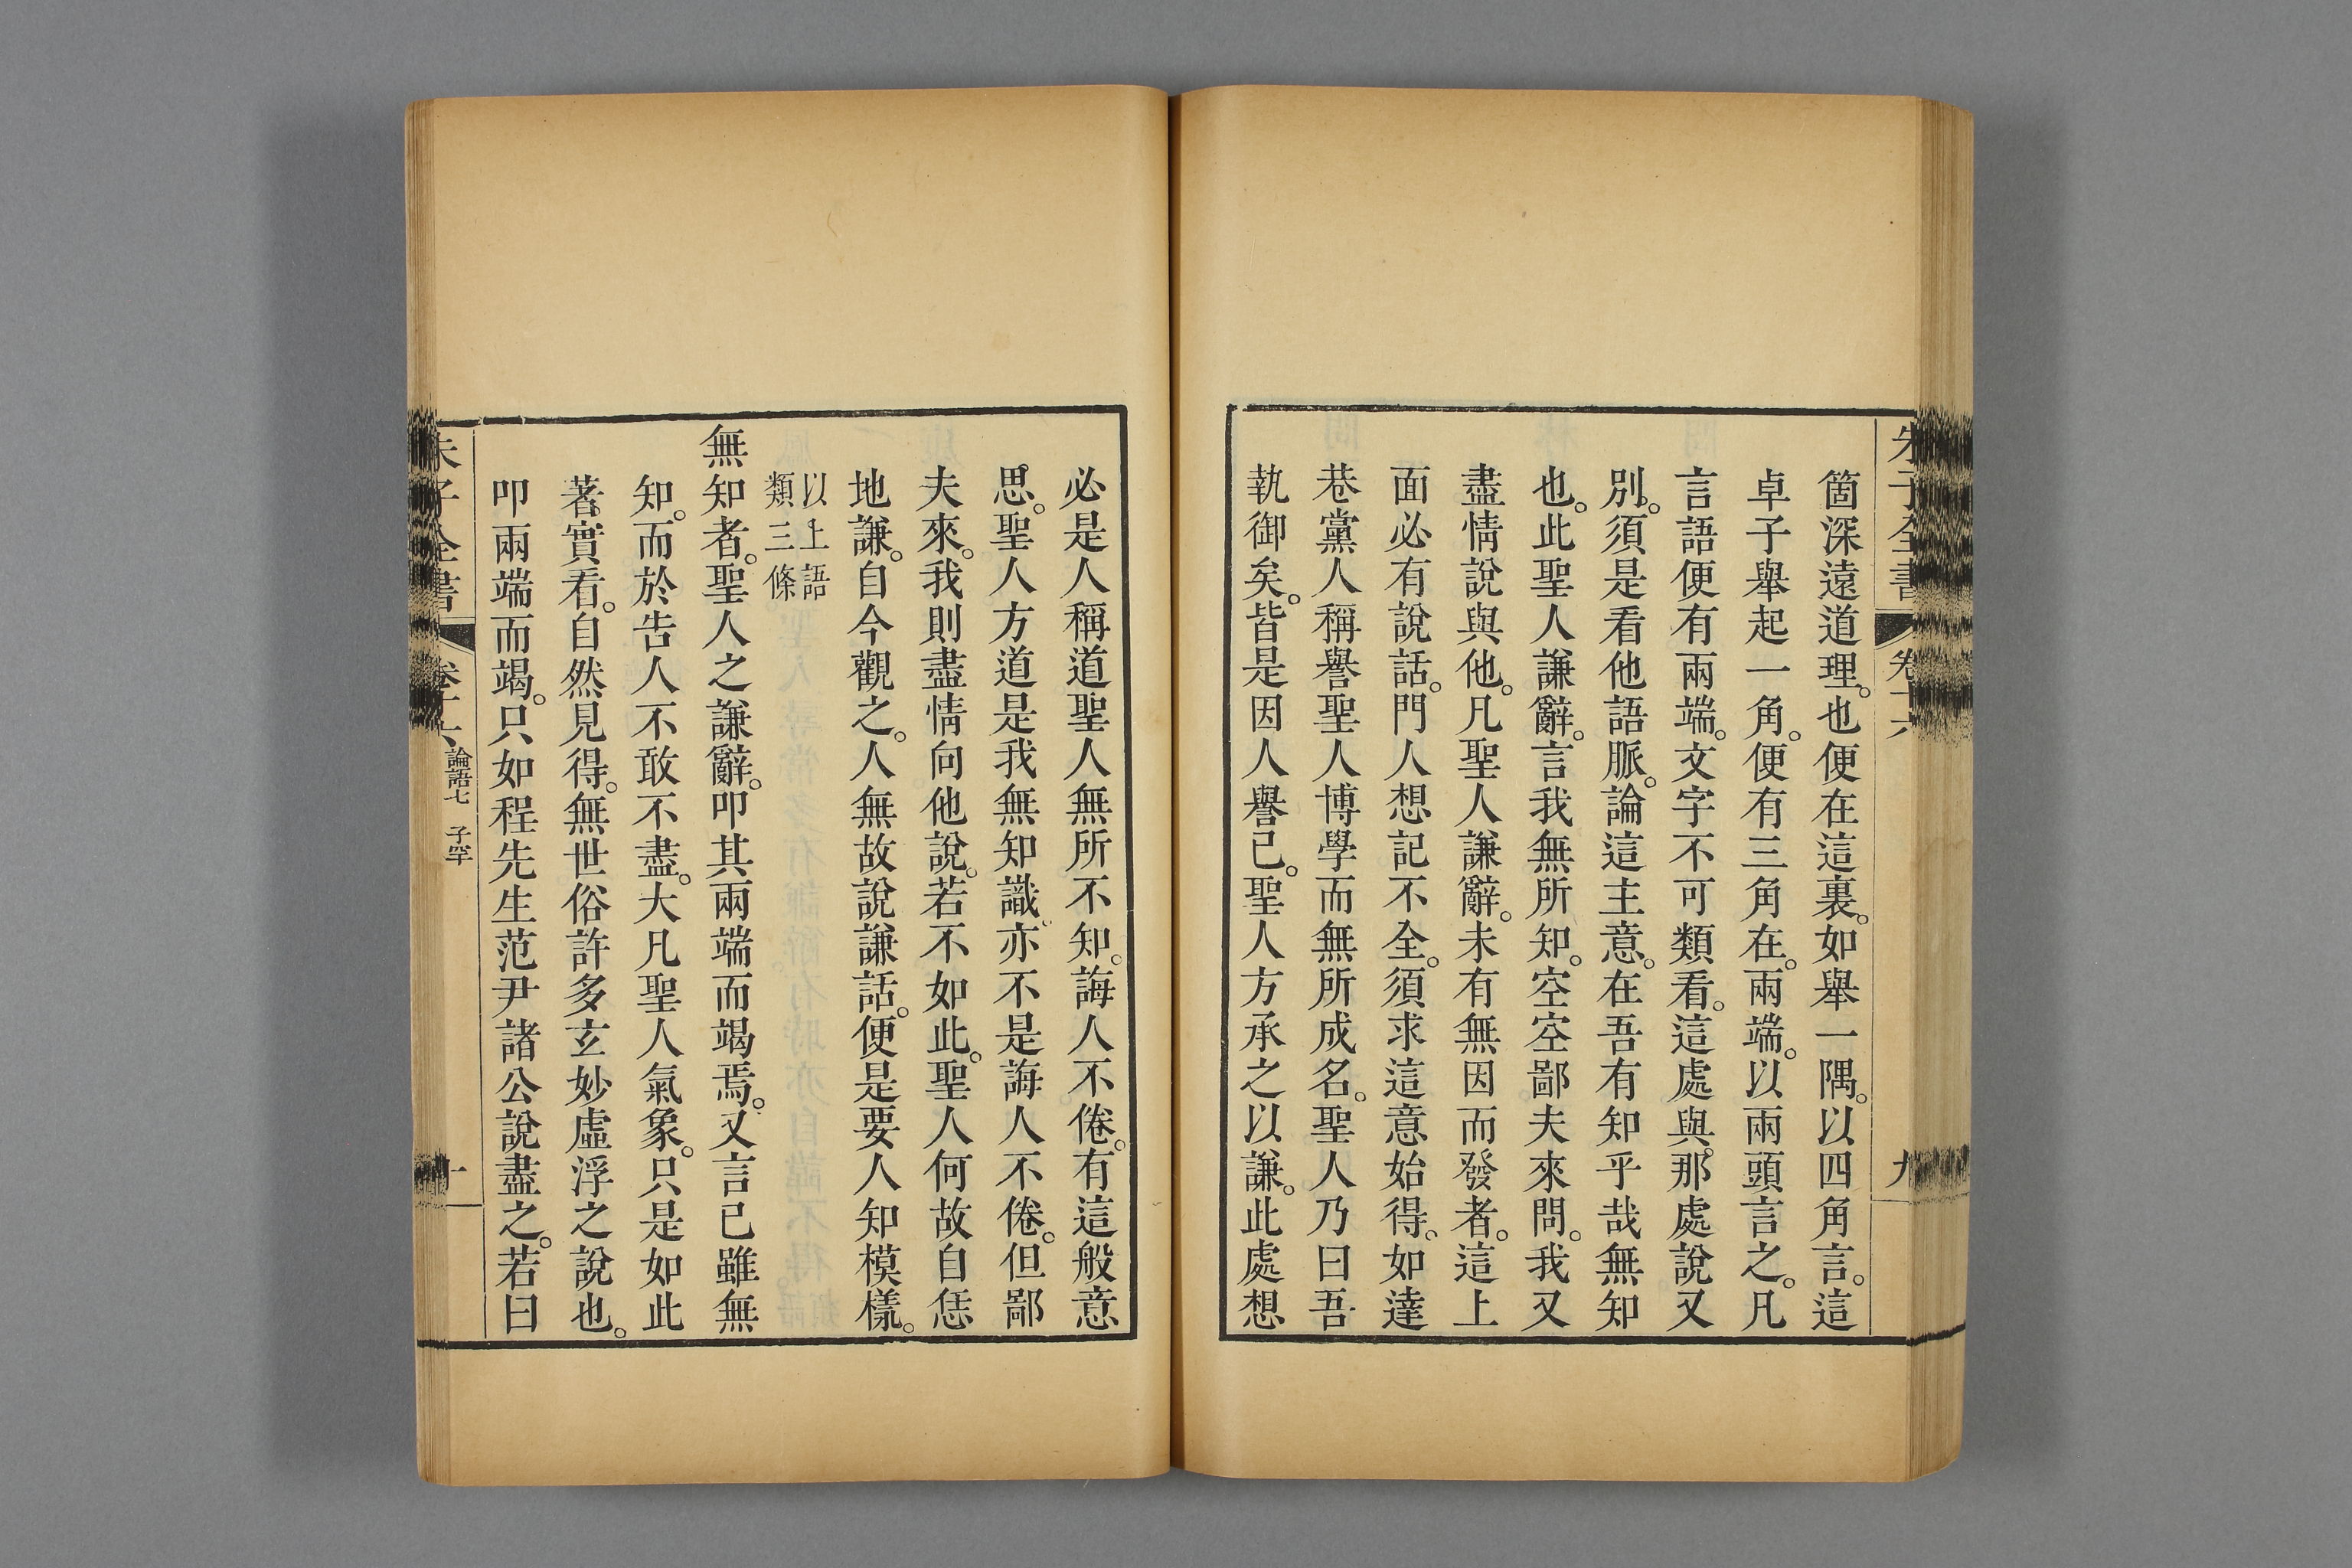 朱子全書 卷十六 九
箇深遠道理。也便在這裏。如舉一隅。以四角言。這
卓子舉起一角。便有三角在。兩端。以兩頭言之。凡
言語便有兩端。文字不可類看。這處與。那處說又
別。須是看他語脈。論這主意。在吾有知乎哉無知
也。此聖人謙辭。言我無所知。空空鄙夫來問。我又
盡情說與他。凡聖人謙辭。未有無因而發者。這上
面必有說話。門人想記不全。須求這意始得。如達
巷黨人稱譽聖人博學而無所成名。聖人乃曰吾
執御矣。皆是因人譽已。聖人方承之以謙。此處想
必是人稱道聖人無所不知。誨人不倦。有這般意
思。聖人方道是我無知識。亦不是誨人不倦。但鄙
夫來。我則盡情向他說。若不如此。聖人何故自恁
地謙。自今觀之。人無故說謙話。便是要人知模樣。
以上語
類三條
無知者。聖人之謙辭。叩其兩端而竭焉。又言已雖無
知。而於告人不敢不盡。大凡聖人氣象。只是如此
著實看。自然見得。無世俗許多玄妙虛浮之說也。
叩兩端而竭。只如程先生范尹諸公說盡之。若曰
朱子全書 卷十六 論語七 子罕 十